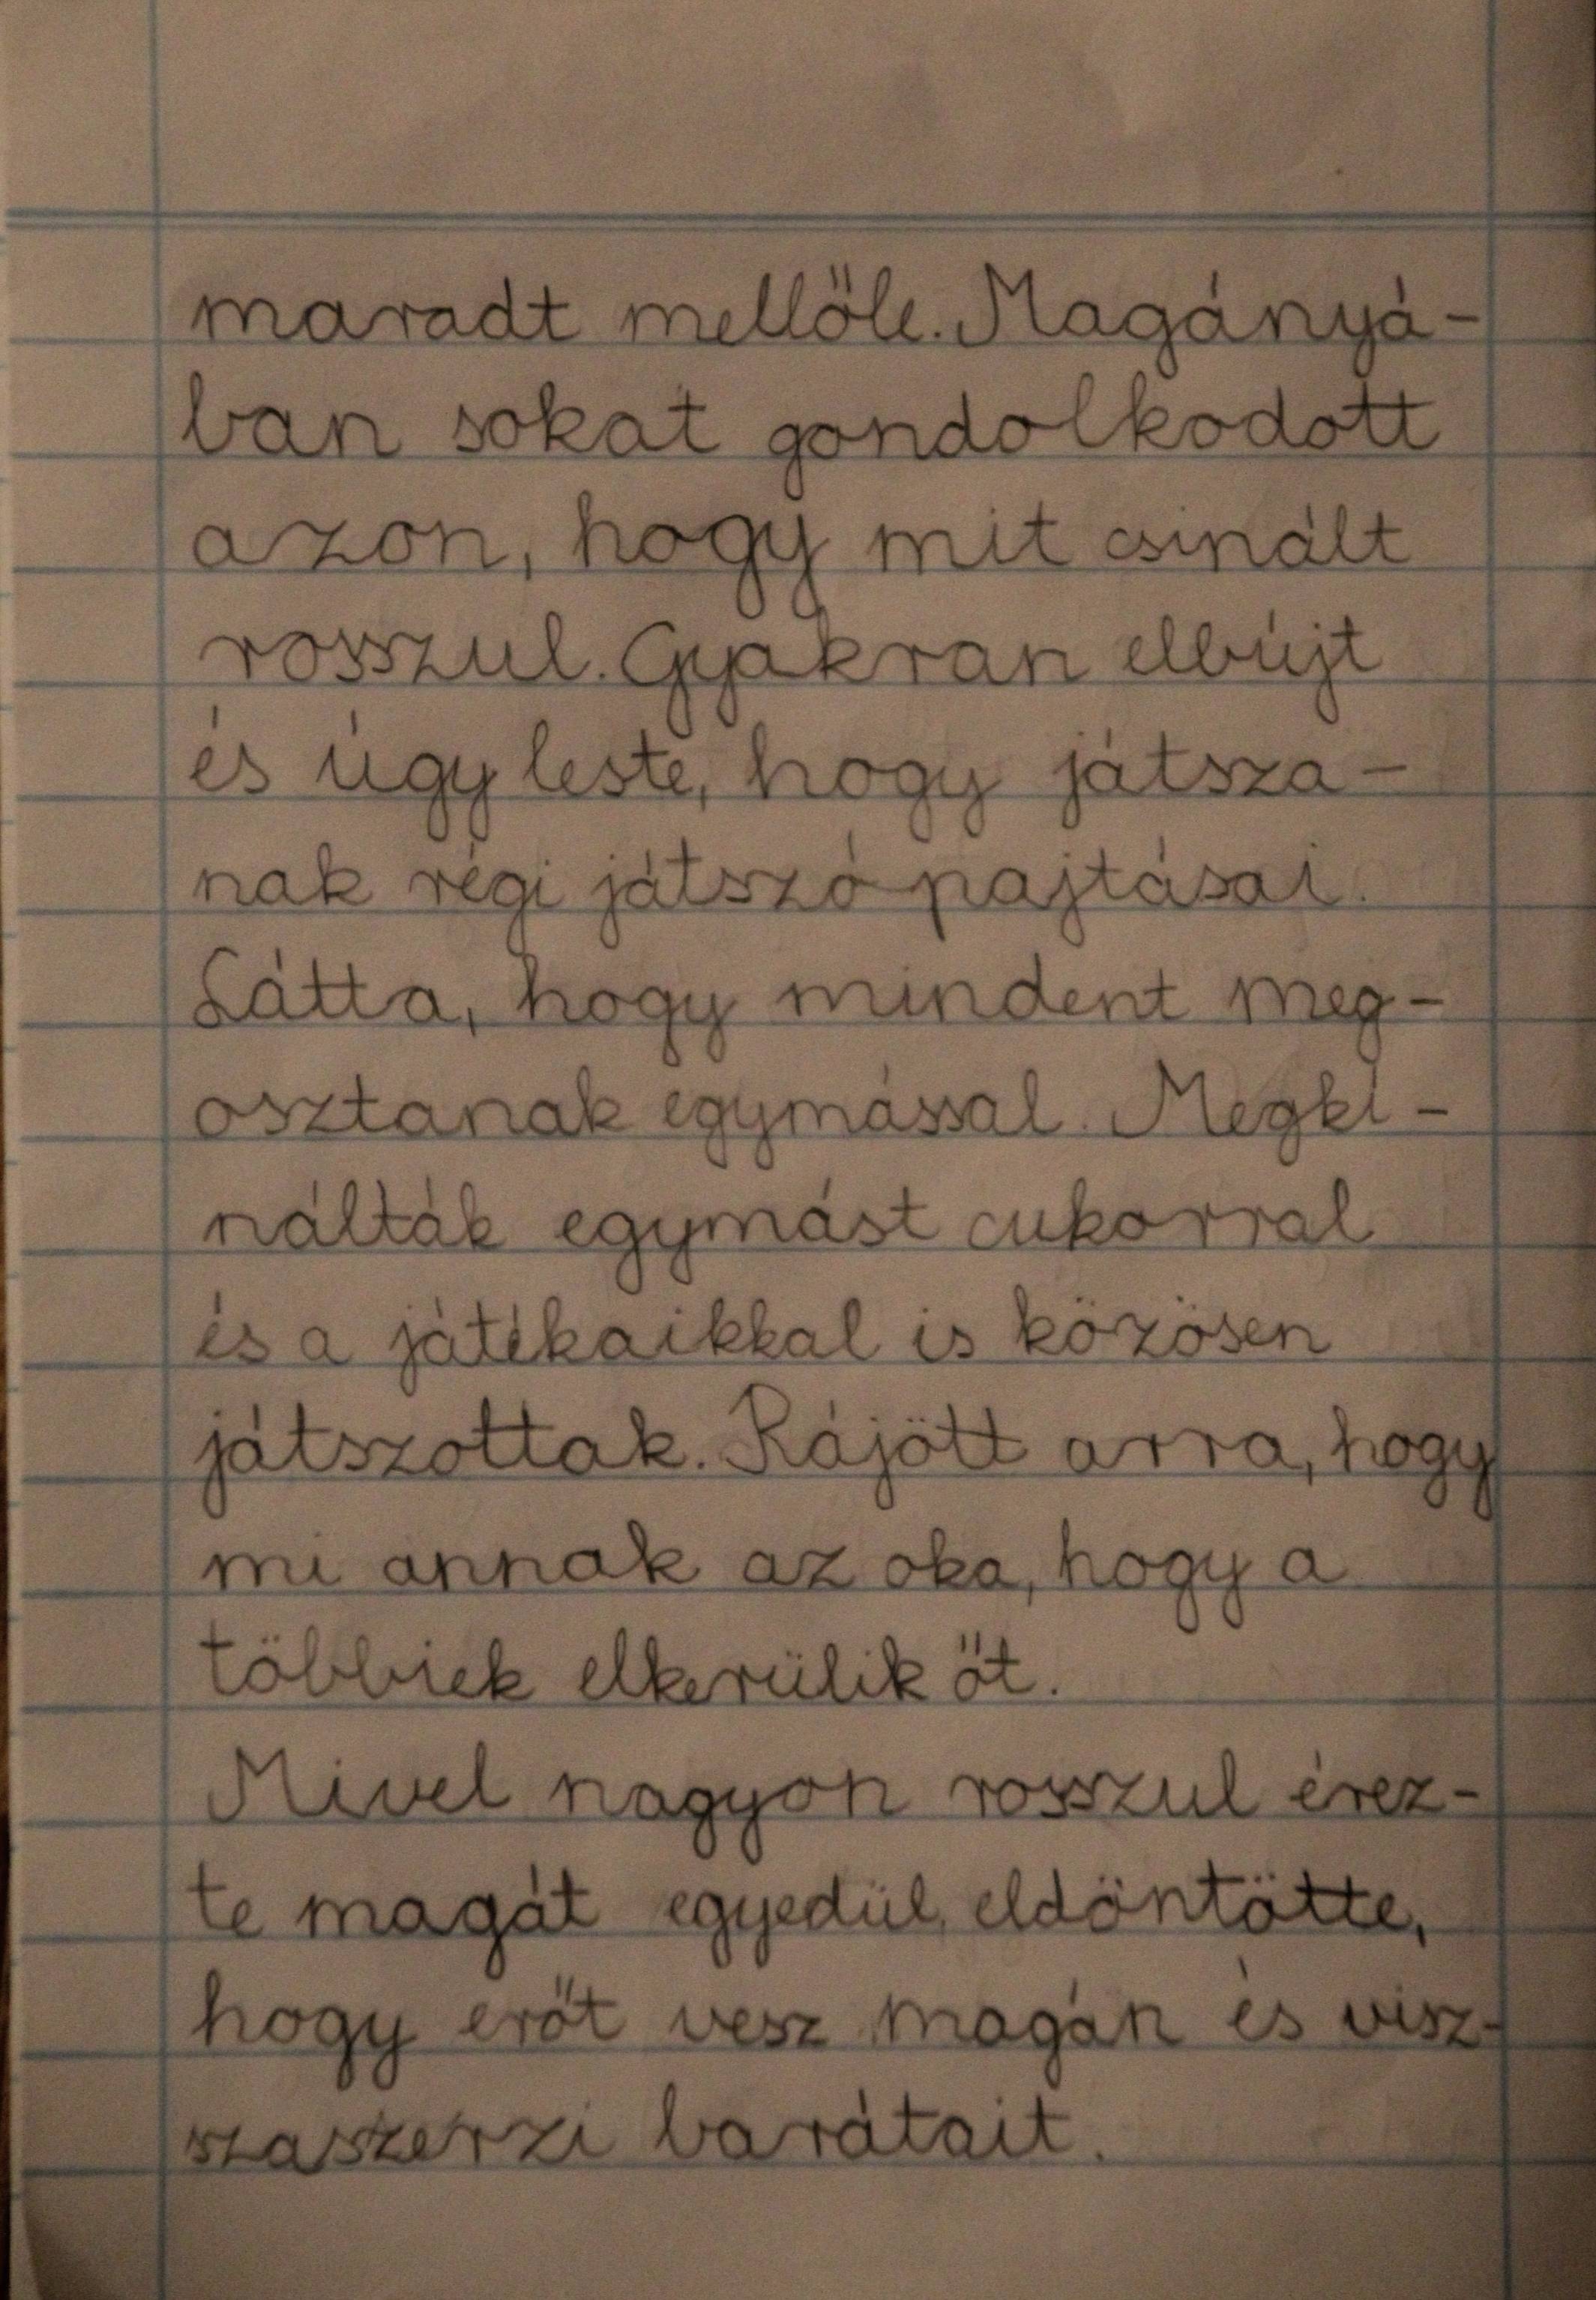 maradt mellőle. Magányá-
ban sokat gondolkodott
azon, hogy mit csinált
rosszul. Gyakran elbújt
és úgy leste, hogy játsza-
nak régi játszópajtásai.
Látta, hogy mindent meg-
osztanak egymással. Megkí-
nálták egymást cukorral
és a játékaikkal is közösen
játszottak. Rájött arra, hogy
mi annak az oka, hogy a
többiek elkerülik őt.
Mivel nagyon rosszul érez-
te magát egyedül, eldöntötte,
hogy erőt vesz magán és visz-
szaszerzi barátait.